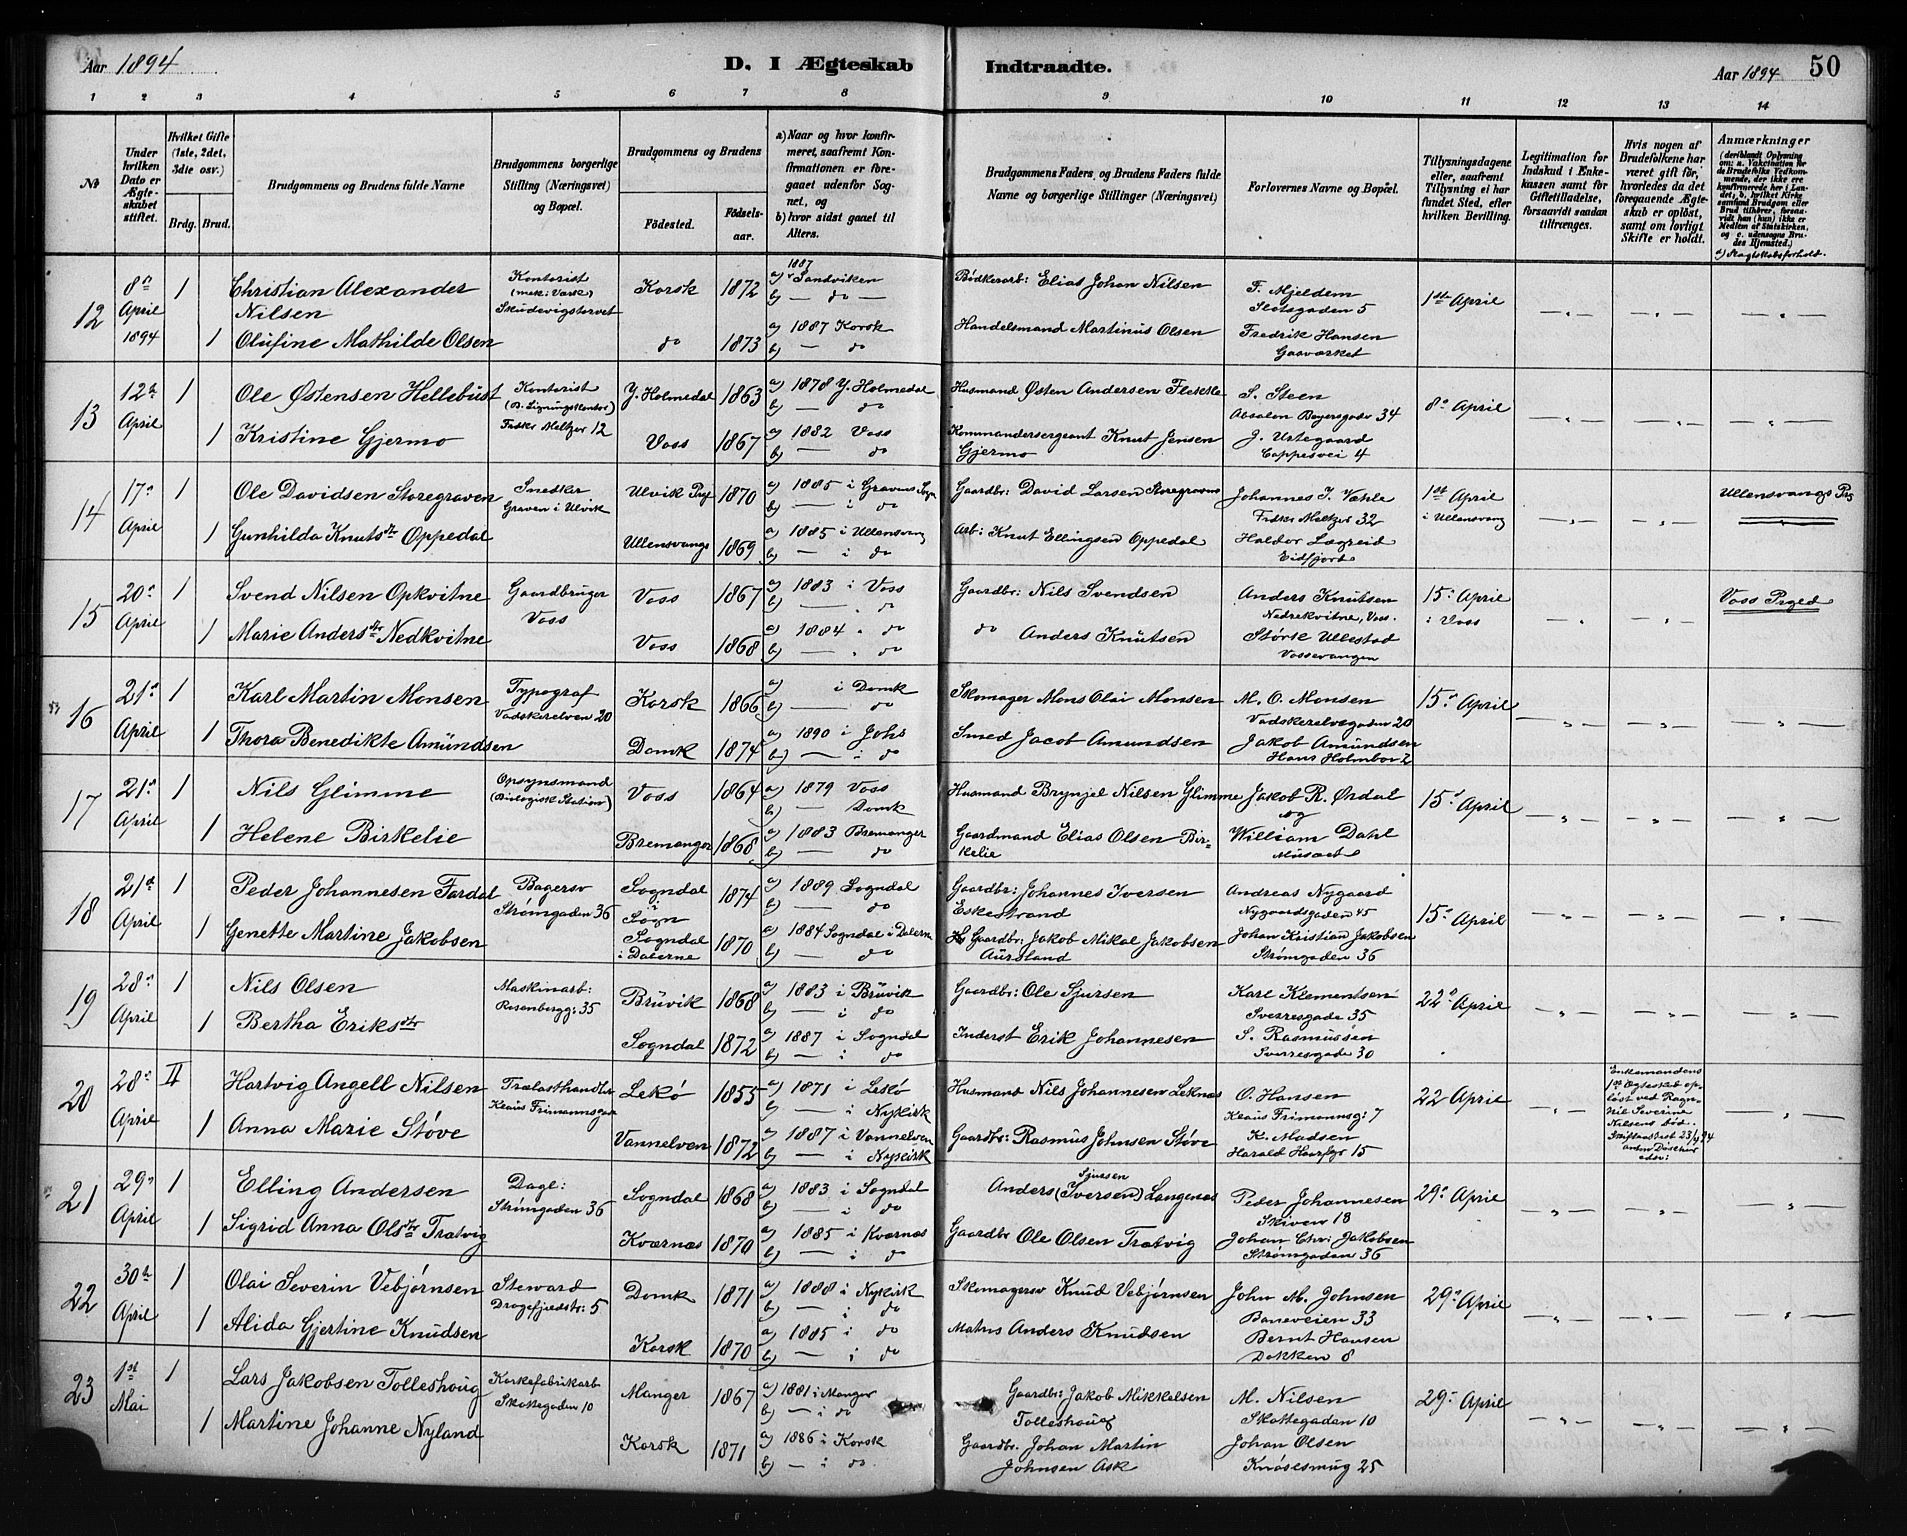 Aar 1894 D. I Ægteskab Indtraadte. Aar 1894 50
1 2 3 4 5 6 7 8 9 10 11 12 13 14
№
Under hvilken Dato er Ægteskabet stiftet.
Hvilket Gifte (1ste, 2det, 3die osv.)
Brdg. Brud.
Brudgommens og Brudens fulde Navne
Brudgommens borgerlige Stilling (Næringsvei) og Bopæl.
Brudgommens og Brudens
Fødested. Fødselsaar.
a) Naar og hvor konfirmeret, saafremt Konfirmationen er foregaaet udenfor Sognet, og
b) hvor sidst gaaet til Alters.
Brudgommens Faders og Brudens Faders fulde Navne og borgerlige Stillinger (Næringsvei)
Forlovernes Navne og Bopæl.
Tillysningsdagene eller, saafremt Tillysning ei har fundet Sted, efter hvilken Bevilling.
Legitimation for Indskud i Enkekassen samt for Giftetilladelse, forsaavidt saadan tiltrænges.
Hvis nogen af Brudefolkene har været gift før, hvorledes da det foregaaende Ægteskab er opløst, samt om lovligt Skifte er holdt.
Anmærkninger
(deriblandt Oplysning om: a. Vaccination for de Brudefolks Vedkommende, der ikke ere konfirmerede her i Landet, b. hvilket Kirkesamfund Brudgom eller Brud tilhører, forsaavidt han (hun) ikke er Medlem af Statskirken, og c. udensogns Brudes Hjemsted.)
12 8de April 1894 1 Christian Alexander Nilsen Kontorist (mek: Værk) Skudevigstorvet Korsk 1872 a) 1887 Sandviken b) — do — Bødkerarb: Elias Johan Nilsen F. Mjeldem Slotsgaden 5 1ste April — „ — — „ — — „ —
1 Olufine Mathilde Olsen do 1873 a) 1887 Korsk b) — do Handelsmand Martinus Olsen Fredrik Hansen Gasværket
13 12te April 1 Ole Østensen Hellebust Kontorist (B. Ligningskontor) Fredr Meltzer 12 Y. Holmedal 1863 a) 1878 Y. Holmedal b) — do Husmand Østen Andersen Flekke S. Steen Absalon Beyersgade 34 8de April — „ — — „ — — „ —
1 Kristine Gjermo Voss 1867 a) 1882 Voss b) — do Kommandersergeant Knut Jensen Gjermo J. Urtegaard Cappesvei 4
14 17de April 1 Ole Davidsen Storegraven Snedker Graven i Ulvik Ulvik Prgl 1870 a) 1885 i Gravens Sogn b) — i do Gaardbr: David Larsen Storegraven Johannes J. Væhle Fredr Meltzer 32 1ste April i Ullensvang — „ — — „ — Ullensvangs Prg
1 Gunhilda Knutsdtr Oppedal Ullensvangs 1869 a) 1885 i Ullensvang b) — i do Arb: Knut Ellingsen Oppedal Haldor Lægreid Eidfjord
15 20de April 1 Svend Nilsen Opkvitne Gaardbruger Voss Voss 1867 a) 1883 i Voss b) — „ do Gaardbr: Nils Svendsen Anders Knutsen Nedrekvitne, Voss. 15de April i Voss — „ — — „ — Voss Prged
1 Marie Andersdtr Nedkvitne Voss 1868 a) 1884 „ do b) — „ do do Anders Knutsen Størk Ullestad Vossevangen
16 21de April 1 Karl Martin Monsen Typograf Vadskerelven 20 Korsk 1866 a) i Domk b) — do Skomager Mons Olai Monsen M. O. Monsen Vadskerelvegaden 20 15de April — „ — — „ — — „ —
1 Thora Benedikte Amundsen Domk 1874 a) 1890 i Johs b) — i do Smed Jacob Amundsen Jakob Amundsen Hans Holmbor 2
17 21de April 1 Nils Glimme Opsynsmand (Biologisk Station) Voss 1864 a) 1879 Voss b) — Domk Husmand Brynjel Nilsen Glimme Jakob R. Ørdal og 15de April — „ — — „ — — „ —
1 Helene Birkelie Bremanger 1868 a) 1883 Bremanger b) — do Gaardmand Elias Olsen Birkelie William Dahl Musæet
18 21de April 1 Peder Johannesen Fardal Bagersv Strømgaden 36 Sogndal i Sogn 1874 a) 1889 Sogndal b) — do Gaardbr: Johannes Iversen Eskestrand Andreas Nygaard Nygaardsgaden 45 15de April — „ — — „ — — „ —
1 Genette Martine Jakobsen Sogndal i Dalerne 1870 a) 1884 Sogndal i Dalerne b) — do Gaardbr: Jakob Mikal Jakobsen Aursland Johan Kristian Jakobsen Strømgaden 36
19 28de April 1 Nils Olsen Maskinarb: Rosenbergg: 35 Bruvik 1868 a) 1883 i Bruvik b) — i do Gaardbr: Ole Sjursen Karl Klementsen Sverresgade 35 22de April — „ — — „ — — „ —
1 Bertha Eriksdtr Sogndal 1872 a) 1887 i Sogndal b) — i do Inderst Erik Johannesen S. Rasmussen Sverresgade 30
20 28de April II Hartvig Angell Nilsen Trælasthandler Klaus Frimannsgade Lekø 1855 a) 1871 i Lekø b) — i Nykirk Husmand Nils Johannesen Leknæs O. Hansen Klaus Frimannsg: 7 22 April — „ — Enkemandens 1ste Ægteskab opløst ved Ragnhil Severine Nilsens død. Skifteattest 23/4 94 — „ —
1 Anna Marie Støve Vannelven 1872 a) 1887 i Vannelven b) — i Nykirk Gaardbr: Rasmus Johnsen Støve K. Madsen Harald Haarfgr 15
21 29de April 1 Elling Andersen Dagl: Strømgaden 36 Sogndal 1868 a) 1883 i Sogndal b) — i do Anders (Iversen) Sjursen Langenæs Peder Johannesen Skiven 18 29de April — „ — — „ — — „ —
1 Sigrid Anna Olsdtr Trætvig Kværnæs 1870 a) 1885 i Kværnæs b) — i do Gaardbr Ole Olsen Trætvig Johan Chr: Jakobsen Strømgaden 36
22 30te April 1 Olai Severin Vebjørnsen Steward Dragefjeldstr: 5 Domk 1871 a) 1888 i Nykirk b) — i do Skomagersv Knud Vebjørnsen John M. Johnsen Baneveien 33 29de April — „ — — „ — — „ —
1 Alida Gjertine Knudsen Korsk 1870 a) 1885 i do b) — i do Matrs Anders Knudsen Bernt Hansen Dokken 8
23 1ste Mai 1 Lars Jakobsen Tolleshoug Korkefabrikarb Skottegaden 10 Manger 1867 a) 1881 i Manger b) — i do Gaardbr: Jakob Mikkalsen Tolleshoug M. Nilsen Skottegaden 10 29de April — „ — — „ — — „ —
1 Martine Johanne Nyland Korsk 1871 a) 1886 i Korsk b) — i do. Gaardbr. Johan Martin Johnsen Ask Johan Olsen Knøsesmug 25